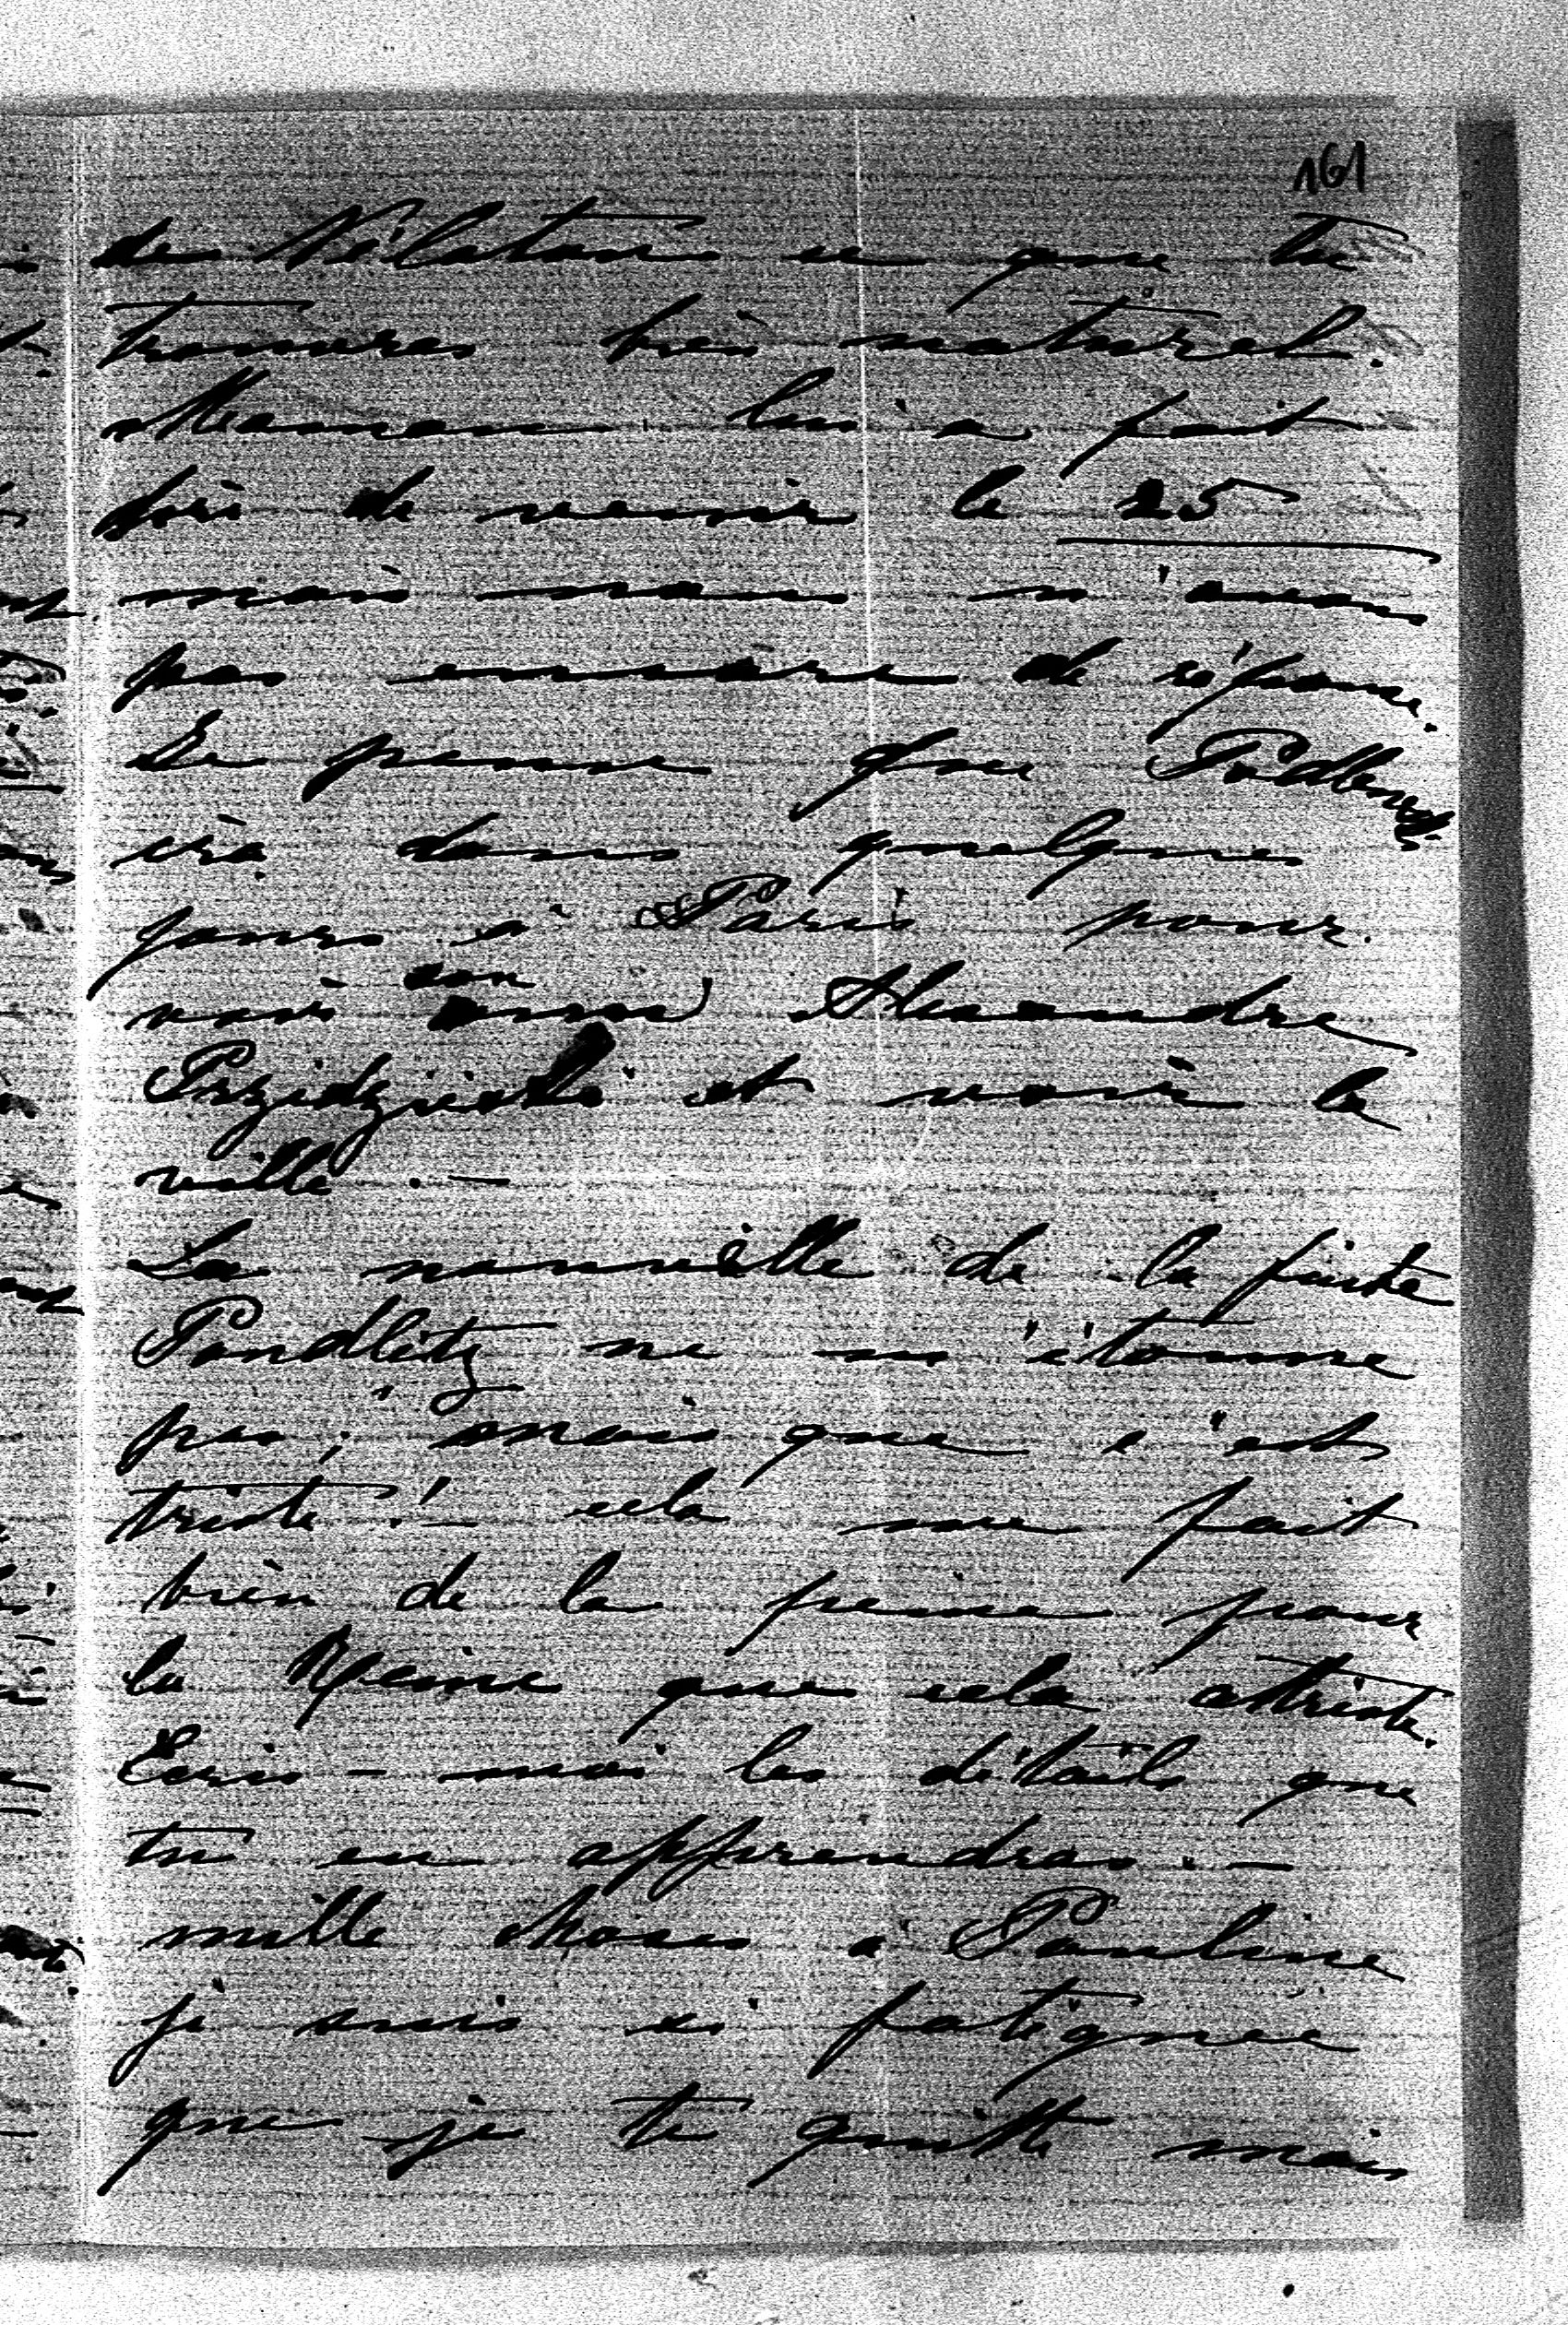 161
de Nélaton ce que tu
trouveras bien naturel.
Maman lui a fait
prié de venir le 25
mais nous n'avons
pas encore de réponse.
Je pense que
ira dans quelques
jours à Paris pour
voir son Alexandre
Przezdziecki et voir la
ville. —
La nouvelle de la fuite
ne m'étonne
pas, mais que c'est
triste! — cela me fait
bien de la peine pour
la Reine que cela attriste.
Ecris-moi les détails que
tu en apprendras. —
mille choses à Pauline
je suis si fatiguée
que je te quitte mais